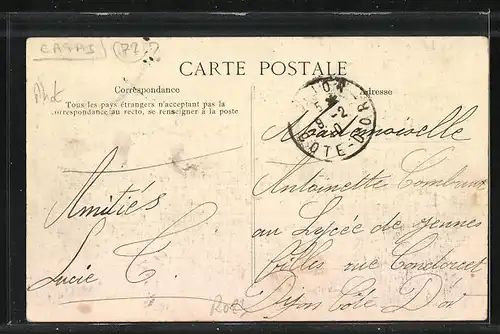 CARTE POSTALE
Correspondance
Tous les pays étrangers n'acceptant pas la
correspondance au recto, se renseigner à la poste
Adresse
DIJON
9 -2
COTE-D'OR
Amitiés
Lucie C.
Mademoiselle
Antoinette
au Lycée de jeunes
filles rue Condorcet
Dijon Côte D'or